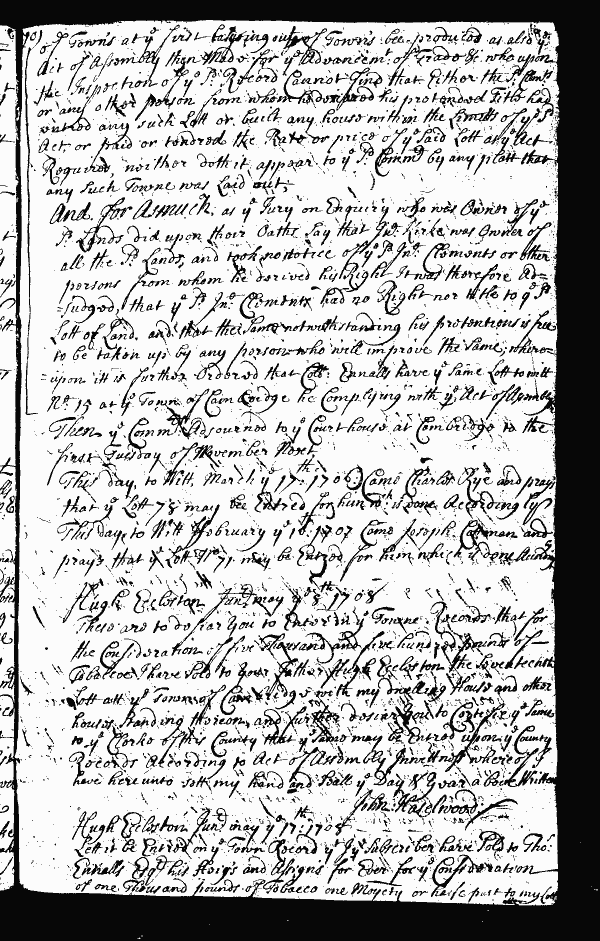 70)
of Towns at ye first laying out of Towns bee produced as also ye
Act of Assembly then Made for ye Advancemt. of Trade &c who upon
the Inspection of ye Sd. Record Cannot find that Either the Sd. Clemts
or any other person from whom he derived his pretended Title had
entred any such Lott or built any house within the Limits of ye Sd
Act, or paid or tendred the Rate or price of ye Said Lott as ye Act
Requires, neither doth it appear to ye Sd. Commrs by any platt that
any Such Towne was Laid out;
And for Asmuch as ye Jury on Enquiry who was Owner of ye
Sd. Lands did upon their Oaths Say that Jno. Kirke was Owner of
all the Sd. Lands, and took no notice of ye Sd. Jno. Clements or other
persons from whom he derived his Right It was therefore Ad=
=judged, that ye Sd. Jno. Clements had no Right nor title to ye Sd
Lott of Land, and that the Same notwithstanding his pretentions is free
to be taken up by any person who will improve the Same, where=
=upon itt is further Ordered that Coll: Ennalls have ye Same Lott to witt
No. 15 at ye Town of Cambridge he Complying with ye Act of Assembly
Then ye Commrs. Adjourned to ye Court house at Cambridge to the
first Tuesday of November Next.
This day, to Witt, March ye 17th. 1706 Came Charles Rye and prays
that ye Lott 78 may bee Entred for him wch. is done Accordingly
This day, to Witt February ye 18th 1707 Came Joseph and
prays that ye Lott No. 71 may be Entred for him which is done Accordg
Hugh Eccleston Junr. may ye 8th 1708
These are to desire You to Enter in ye Towne Records that for
the Consideration of five Thousand and five hundred pounds of
Tobaccoe I have Sold to Your Father Hugh Eccleston the Seventeenth
Lott att ye Towne of Cambridge with my dwelling House and other
houses Standing thereon, and further desire You to Certifie ye Same
to ye Clerke of this County that ye Same may be Entred upon ye County
Records According to Act of Assembly In wittness whereof I
have hereunto sett my hand and Seale ye Day & Year above Written
John Haselwood
Hugh Eccleston Junr. may ye 17th. 1708
Lett it be Entred in ye Town Record yt I ye Subscriber have Sold to Tho:
Ennalls Esqr. his Heirs and Assigns for Ever for ye Consideration
of one Thousand pounds of Tobacco one Moyety or halfe part to my Lott